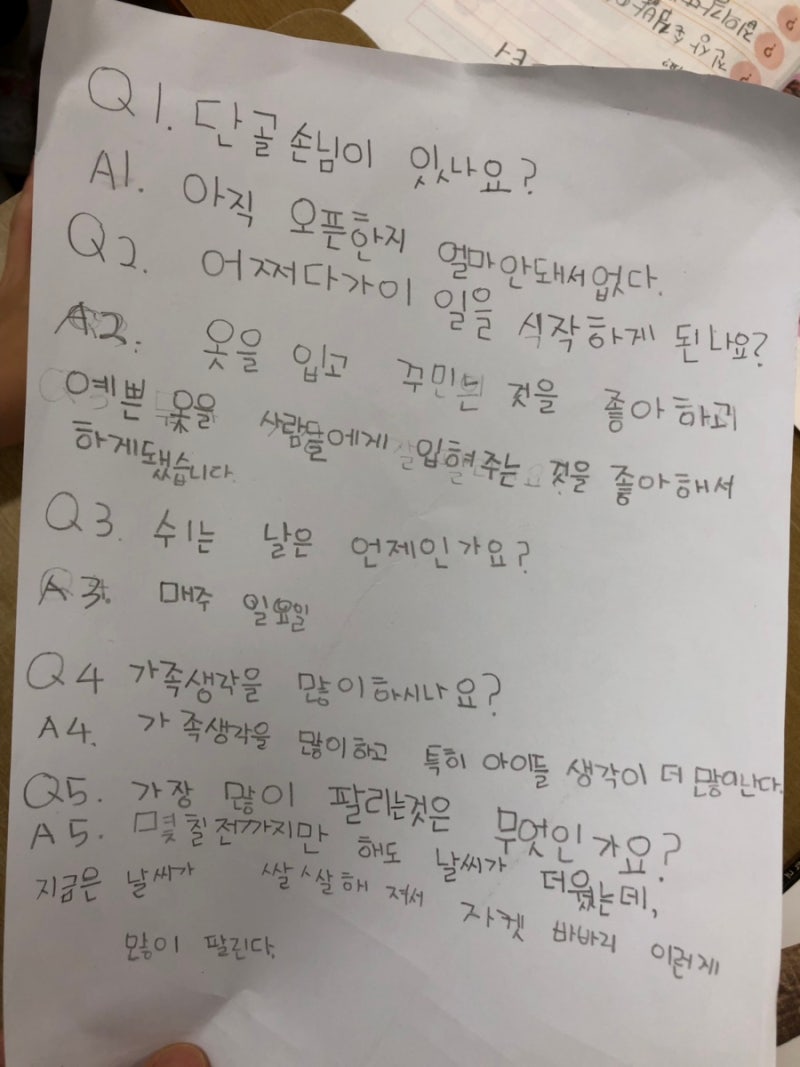 Q1. 단골 손님이 있나요?
A1. 아직 오픈한지 얼마안돼서없다.
Q2. 어쩌다가이 일을 식작하게 된나요?
A2. 옷을 입고 꾸민 것을 좋아하고
예쁜 옷을 사람들에게 입혀주는 것을 좋아해서
하게됐습니다.
Q3. 쉬는 날은 언제인가요?
A3. 매주 일요일
Q4 가족생각을 많이하시나요?
A4. 가족생각을 많이하고 특히 아이들 생각이 더 많이난다.
Q5. 가장 많이 팔리는것은 무엇인가요?
A5. 몇칠전까지만 해도 날씨가 더웠는데,
지금은 날씨가 쌀쌀해 져서 자켓 바바리 이런게
많이 팔린다.